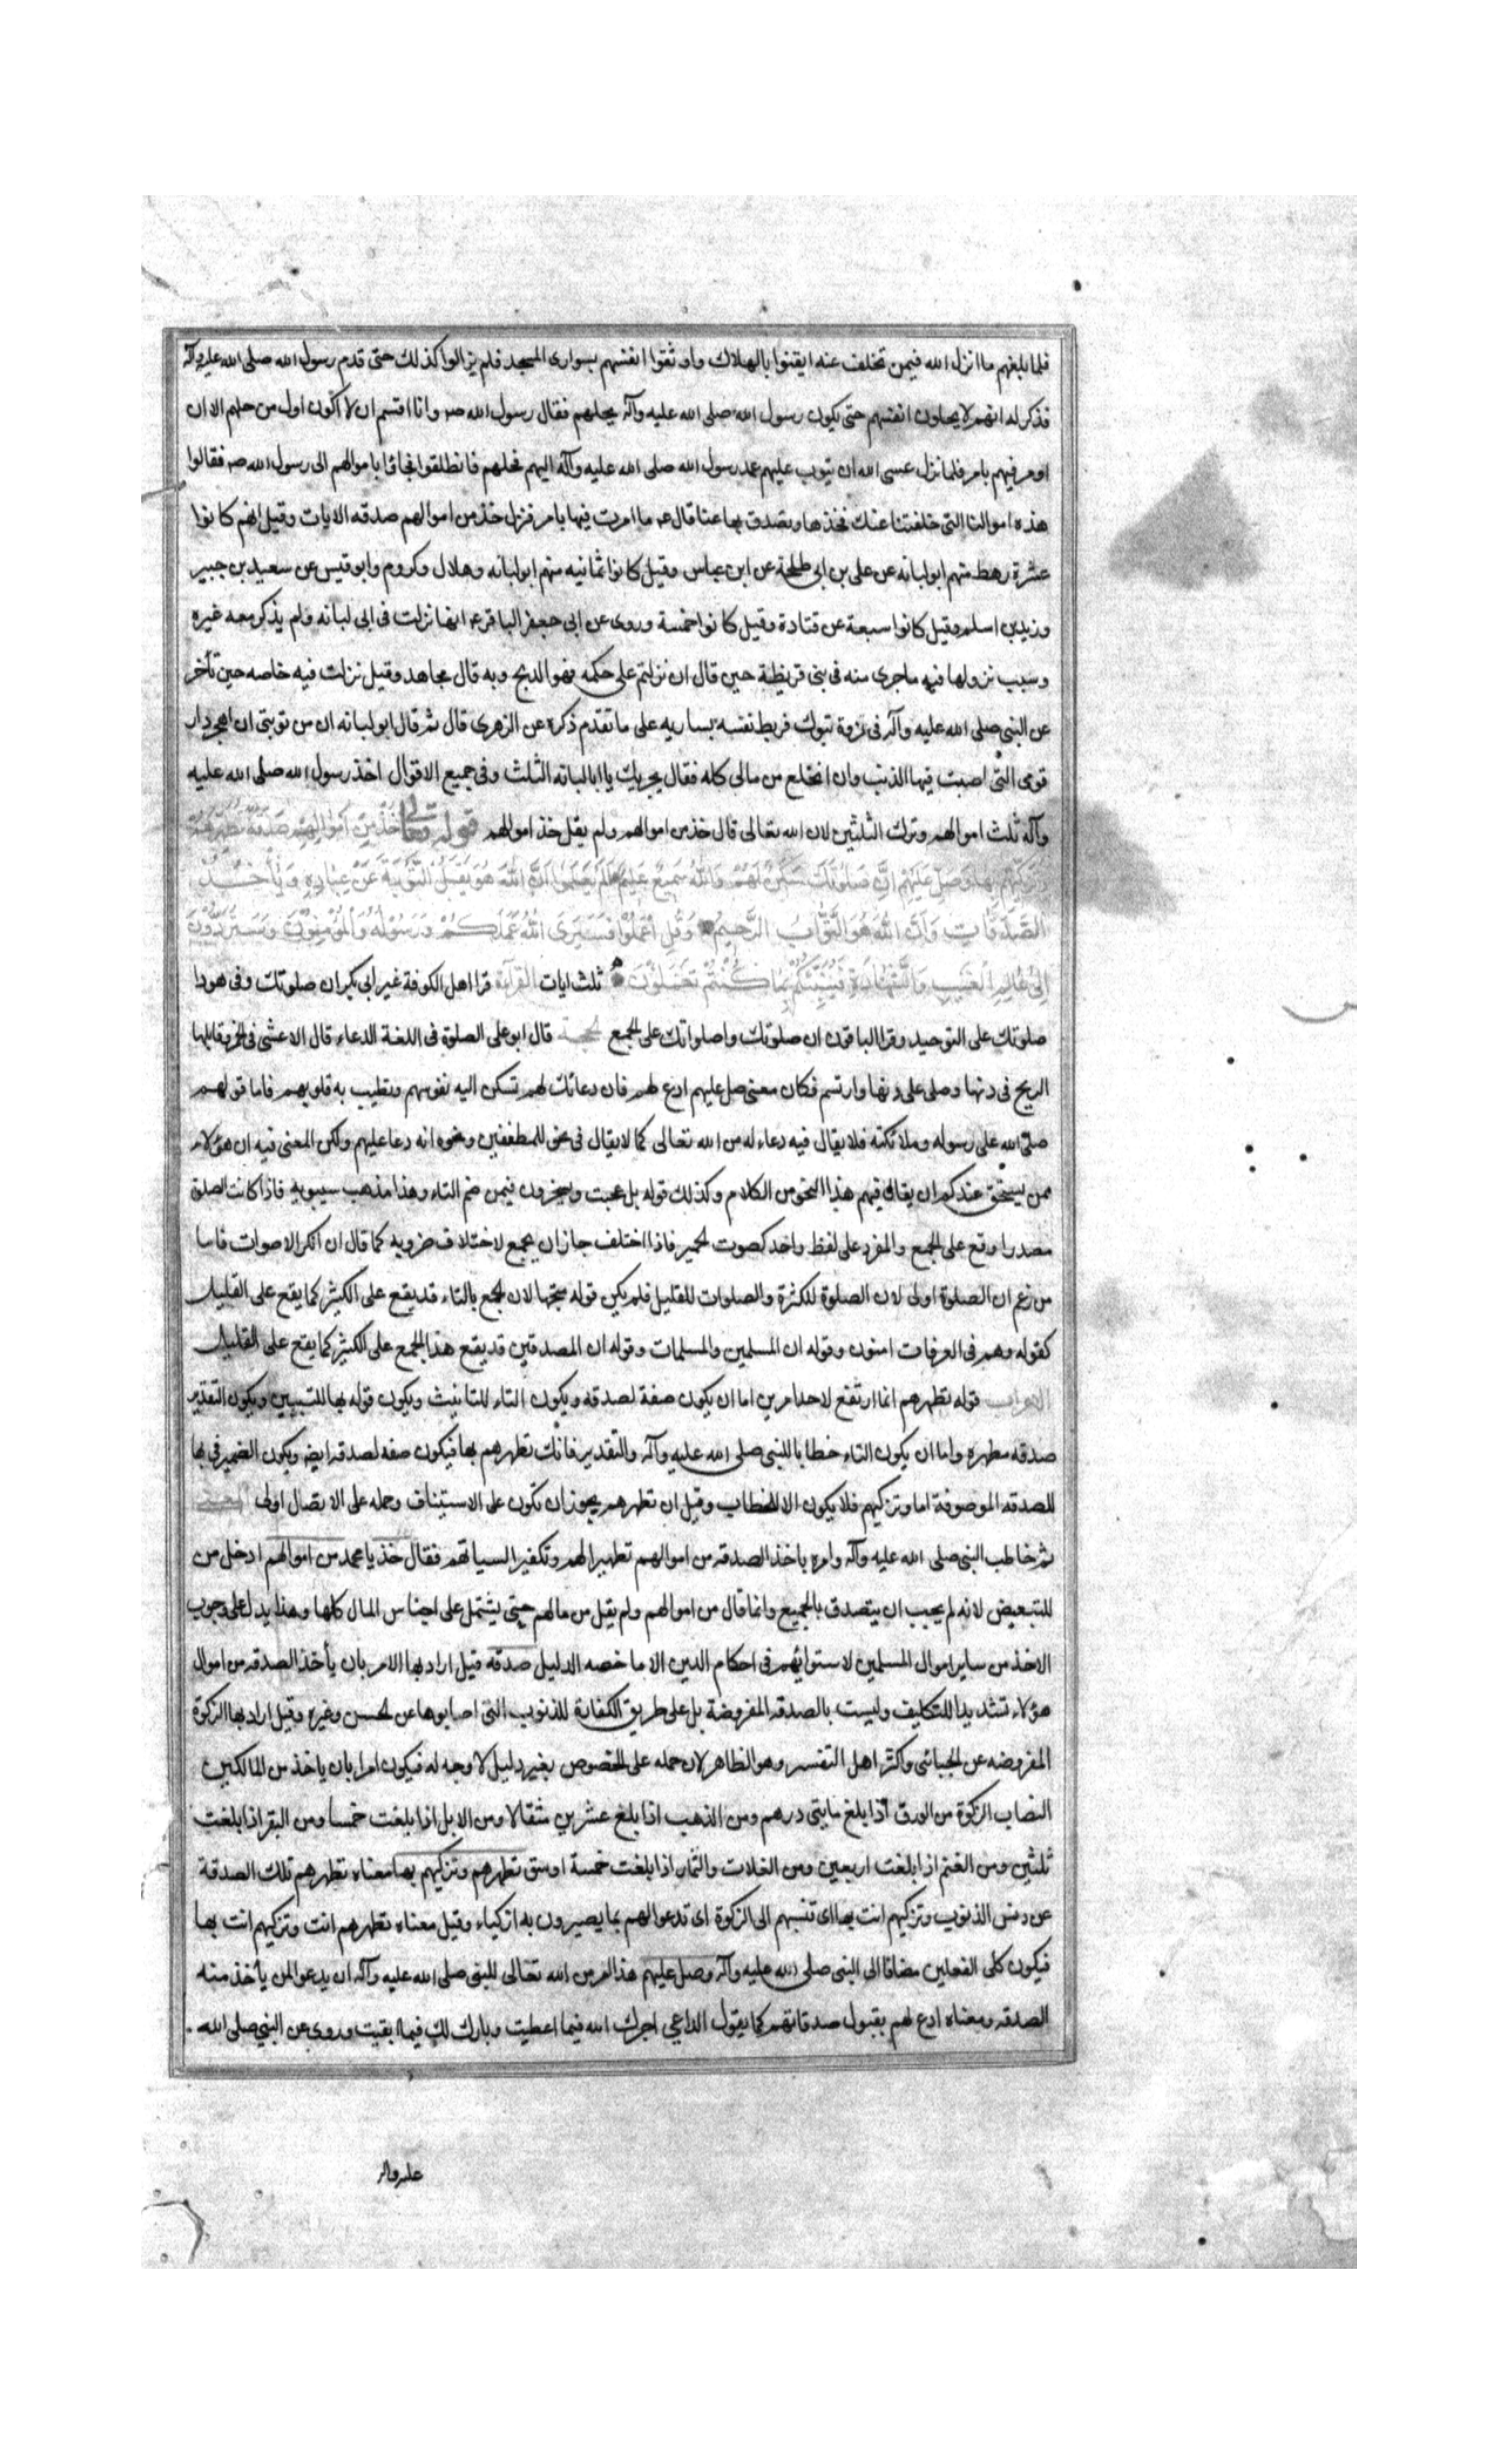 فلما بلغهم ما انزل الله فيمن تخلف عنه ايقنوا بالهلاك واوثقوا انفسهم بسوارى المسجد فلم يزالوا كذلك حتى قدم رسول الله صلى الله عليه وآله
فذكر له انهم لا يحلون انفسهم حتى يكون رسول الله صلى الله عليه وآله يحلهم فقال رسول الله صه وانا اقسم ان لا اكون اول من حلهم الا ان
اومر فيهم بامر فلما نزل عسى الله ان يتوب عليهم عمد رسول الله صلى الله عليه وآله اليهم فحلهم فانطلقوا فجاؤا باموالهم الى رسول الله صه فقالوا
هذه اموالنا التى خلفتنا عنك فخذها وتصدق بها عنا قال عه ما امرت فيها بامر فنزل خذ من اموالهم صدقه الايات وقيل انهم كانوا
عشرة رهط منهم ابو لبابه عن على بن ابى طلحة عن ابن عباس وقيل كانوا ثمانيه منهم ابو لبابه وهلال وكروم وابو قيس عن سعيد بن جبير
وزيد بن اسلم وقيل كانوا سبعة عن قتادة وقيل كانوا خمسة وروى عن ابى جعفر الباقر عه انها نزلت فى ابى لبابه ولم يذكر معه غيره
وسبب نزولها فيه ما جرى منه فى بنى قريظة حين قال ان نزلتم على حكمه فهو الذبح وبه قال مجاهد وقيل نزلت فيه خاصه حين تأخر
عن النبى صلى الله عليه وآله فى غزوة تبوك فربط نفسه بساريه على ما تقدم ذكره عن الزهرى قال ثم قال ابو لبابه ان من توبتى ان اهجر دار
قومى التى اصبت فيها الذنب وان انخلع من مالى كله فقال يجزيك يا ابا لبابه الثلث وفى جميع الاقوال اخذ رسول الله صلى الله عليه
وآله ثلث اموالهم وترك الثلثين لان الله تعالى قال خذ من اموالهم ولم يقل خذ اموالهم قوله تعالى خُذْ مِنْ اَمْوَالِهِمْ صَدَقَةً تُطَهِّرُهُمْ
وَتُزَكِّيهِمْ بِهَا وَصَلِّ عَلَيْهِمْ اِنَّ صَلٰوتَكَ سَكَنٌ لَهُمْ وَاللهُ سَمِيعٌ عَلِيمٌ اَلَمْ يَعْلَمُوا اَنَّ اللهَ هُوَ يَقْبَلُ التَّوْبَةَ عَنْ عِبَادِهِ وَيَأْخُذُ
الصَّدَقَاتِ وَاَنَّ اللهَ هُوَ التَّوَّابُ الرَّحِيمُ وَقُلِ اعْمَلُوا فَسَيَرَى اللهُ عَمَلَكُمْ وَرَسُولُهُ وَالْمُؤْمِنُونَ وَسَتُرَدُّونَ
اِلٰى عَالِمِ الْغَيْبِ وَالشَّهَادَةِ فَيُنَبِّئُكُمْ بِمَا كُنْتُمْ تَعْمَلُونَ ثلث ايات القرآءة قرا اهل الكوفة غير ابى بكر ان صلوتك وفى هود ا
صلوتك على التوحيد وقرا الباقون ان صلوتك واصلواتك على الجمع الحجة قال ابو على الصلوة فى اللغة الدعاء قال الاعشى فى الخمر وقابلها
الريح فى دنها وصلى على دنها وارتسم فكان معنى صل عليهم ادع لهم فان دعائك لهم تسكن اليه نفوسهم وتطيب به قلوبهم فاما قولهم
صلى الله على رسوله وملائكته فلا يقال فيه دعاء له من الله تعالى كما لا يقال فى نحو للمطففين ونحوه انه دعا عليهم ولكن المعنى فيه ان هؤلاء
ممن يستحق عندكم ان يقال فيهم هذا النحو من الكلام وكذلك قوله بل عجبت ويسخرون فيمن ضم التاء وهذا مذهب سيبويه فاذا كانت الصلوة
مصدرا وقع على الجمع والمفرد على لفظ واحد كصوت الحمير فاذا اختلف جاز ان يجمع لاختلاف ضروبه كما قال ان انكر الاصوات فاما
من زعم ان الصلوة اولى لان الصلوة للكثرة والصلوات للقليل فلم يكن قوله متجها لان الجمع بالتاء قد يقع على الكثير كما يقع على القليل
كقوله وهم فى الغرفات امنون وقوله ان المسلمين والمسلمات وقوله ان المصدقين قد يقع هذا الجمع على الكثير كما يقع على القليل
الاعراب قوله تطهرهم انما ارتفع لاحد امرين اما ان يكون صفة لصدقه ويكون التاء للتانيث ويكون قوله بها للتبيين ويكون التقدير
صدقه مطهره واما ان يكون التاء خطابا للنبى صلى الله عليه وآله والتقدير فانك تطهرهم بها فيكون صفه لصدقه ايضه ويكون الضمير فى بها
للصدقه الموصوفة اما وتزكيهم فلا يكون الا للخطاب وقيل ان تطهرهم يجوز ان تكون على الاستيناف وحمله على الاتصال اولى المعنى
ثم خاطب النبى صلى الله عليه وآله وامره باخذ الصدقه من اموالهم تطهيرا لهم وتكفيرا لسيئاتهم فقال خذ يا محمد من اموالهم ادخل من
للتبعيض لانه لم يجب ان يتصدق بالجميع وانما قال من اموالهم ولم يقل من مالهم حتى يشتمل على اجناس المال كلها وهذا يدل على وجوب
الاخذ من ساير اموال المسلمين لاستوائهم فى احكام الدين الا ما خصه الدليل صدقة قيل اراد بها الامر بان يأخذ الصدقه من اموال
هؤلاء تشديدا للتكليف وليست بالصدقه المفروضة بل على طريق الكفارة للذنوب التى اصابوها عن الحسن وغيره وقيل اراد بها الزكوة
المفروضه عن الجبائى واكثر اهل التفسير وهو الظاهر لان حمله على الخصوص بغير دليل لا وجه له فيكون امرا بان ياخذ من المالكين
النصاب الزكوة من الورق اذا بلغ مايتى درهم ومن الذهب اذا بلغ عشرين مثقالا ومن الابل اذا بلغت خمسا ومن البقر اذا بلغت
ثلثين ومن الغنم اذا بلغت اربعين ومن الغلات والثمار اذا بلغت خمسة اوسق تطهرهم وتزكيهم بها معناه تطهرهم تلك الصدقة
عن دنس الذنوب وتزكيهم انت بها اى تنسبهم الى الزكوة اى تدعوا لهم بما يصيرون به ازكياء وقيل معناه تطهرهم انت وتزكيهم انت بها
فيكون كلى الفعلين مضافا الى النبى صلى الله عليه وآله وصل عليهم هذا امر من الله تعالى للنبى صلى الله عليه وآله ان يدعو لمن يأخذ منه
الصدقه ومعناه ادع لهم بقبول صدقاتهم كما يقول الداعى اجرك الله فيما اعطيت وبارك لك فيما ابقيت وروى عن النبى صلى الله
عليه واله